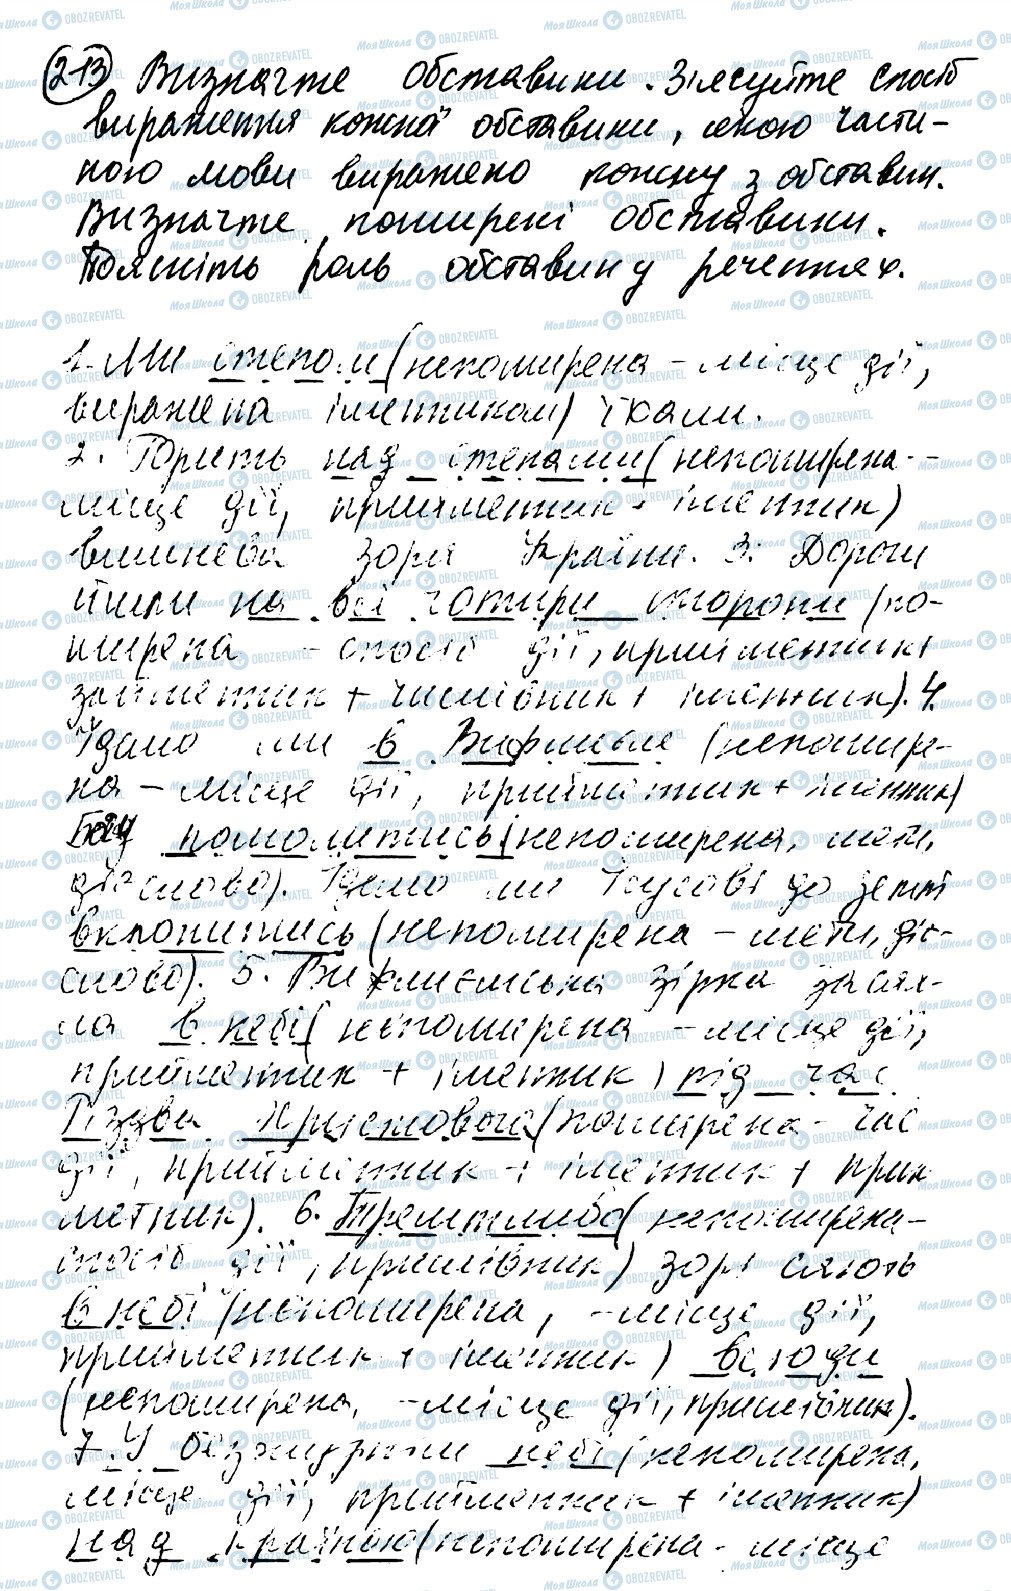 213 Визначте обставини. З'ясуйте спосіб
вираження кожної обставини, якою части-
ною мови виражено кожну з обставин.
Визначте поширені обставини.
Поясніть роль обставин у реченнях.
1. Ми степом (непоширена - місце дії,
виражена іменником) їхали.
2. Горить над степами (непоширена -
місце дії, прийменник + іменник)
вишнева зоря України. 3. Дороги
йшли на всі чотири сторони (по-
ширена - спосіб дії, прийменник +
займенник + числівник + іменник). 4.
Ідемо ми в Вифлиєм (непошире-
на - місце дії, прийменник + іменник)
Богу помолитись (непоширена, мети,
дієслово). Ідемо ми Ісусові до землі
вклонитись (непоширена - мети, діє-
слово). 5. Вифлиємська зірка засія-
ла в небі (непоширена - місце дії,
прийменник + іменник) під час
Різдва Христового (поширена - час
дії, прийменник + іменник + прик
метник). 6. Тремтливо (непоширена -
спосіб дії, прислівник) зорі сяють
в небі (непоширена, - місце дії,
прийменник + іменник) всюди
(непоширена, - місце дії, прислівник).
7. У безхмарнім небі (непоширена,
місце дії, прийменник + іменник)
над країною (непоширена - місце